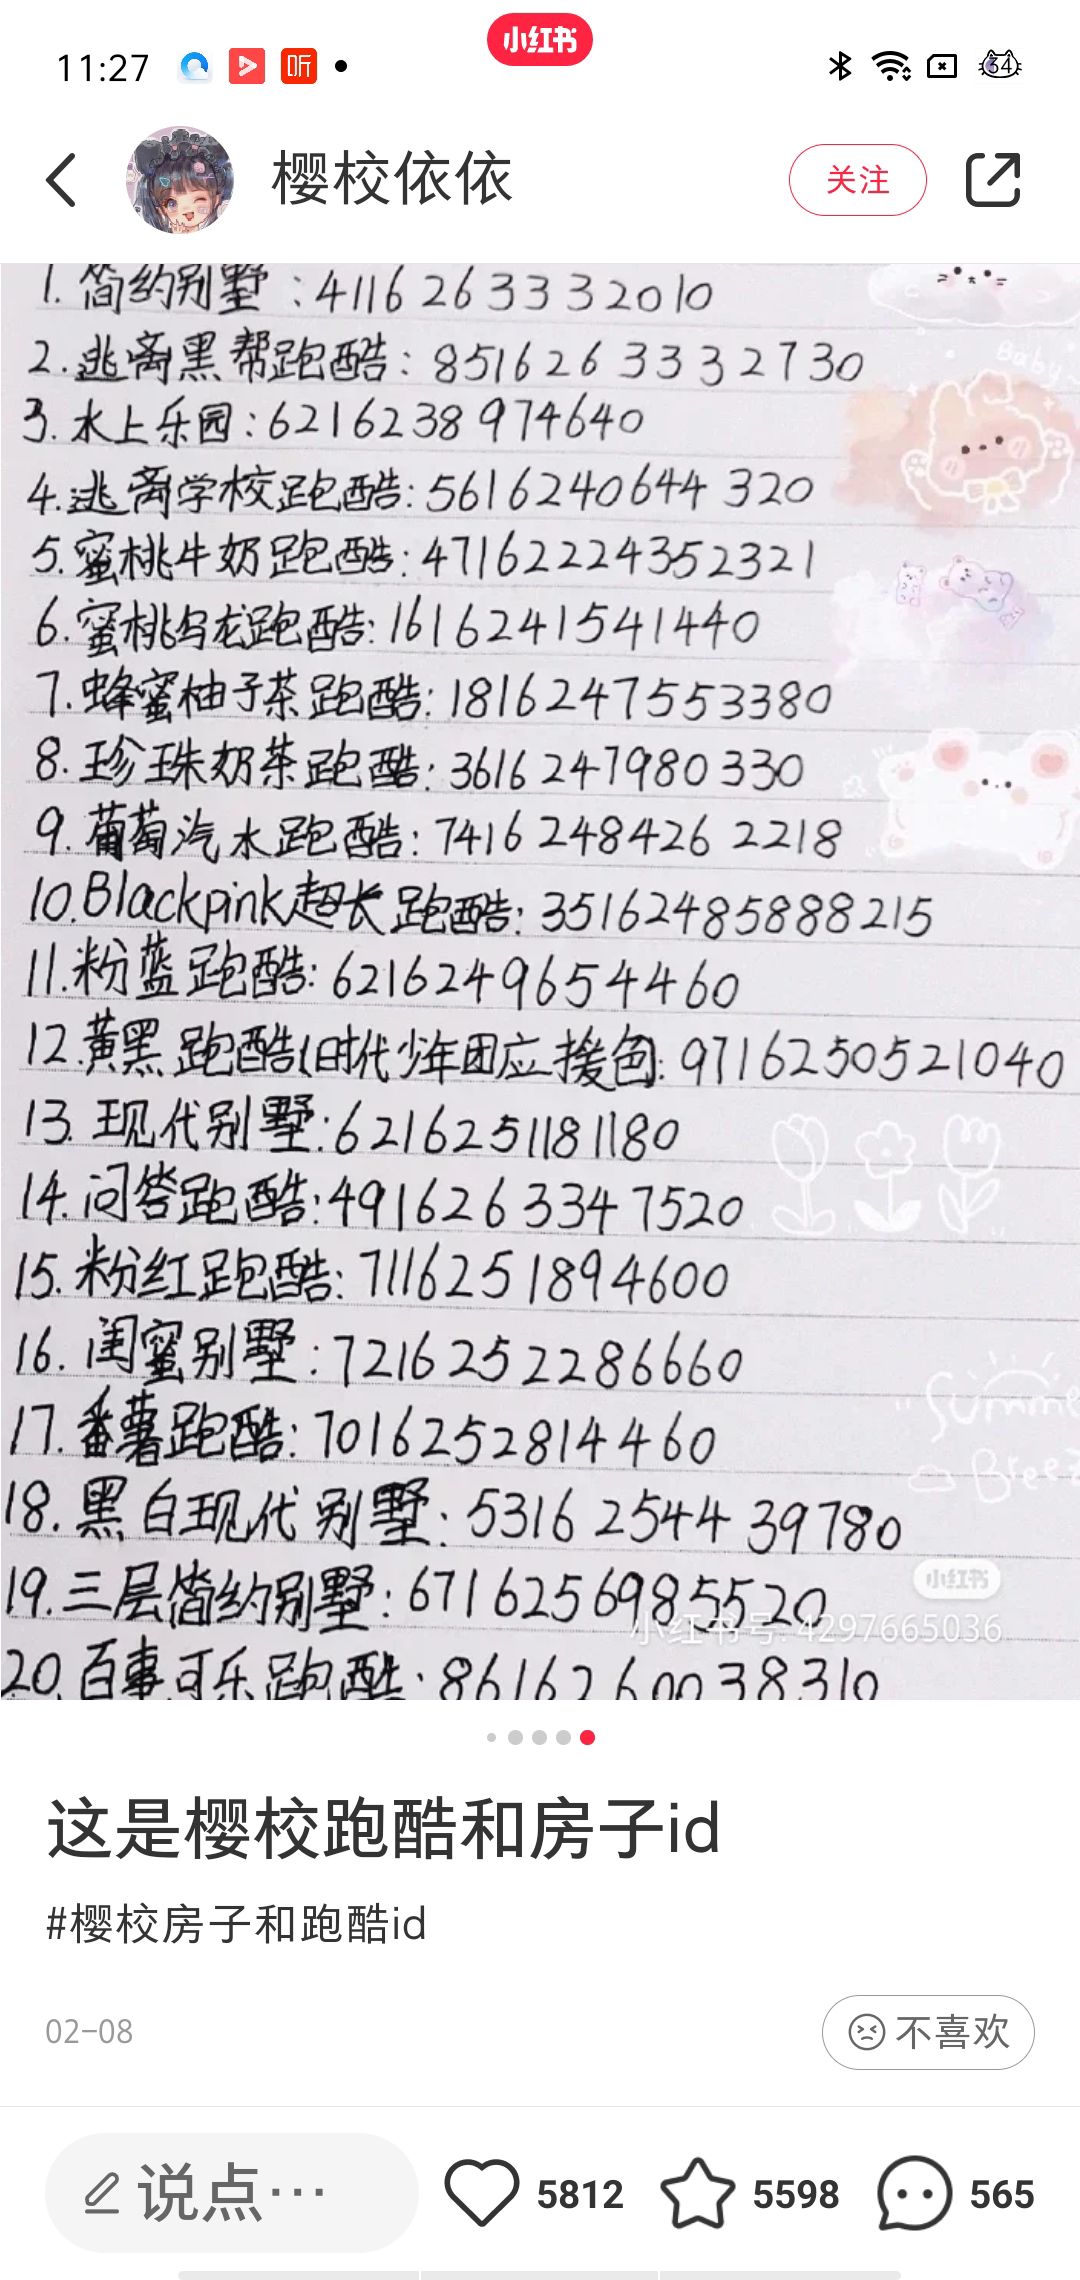 11:27
听
小红书
34
樱校依依
关注
1. 简约别墅:4116263332010
2. 逃离黑帮跑酷:8516263332730
3. 水上乐园:6216238974640
4. 逃离学校跑酷:5616240644320
5. 蜜桃牛奶跑酷:47162224352321
6. 蜜桃乌龙跑酷:1616241541440
7. 蜂蜜柚子茶跑酷:1816247553380
8. 珍珠奶茶跑酷:3616247980330
9. 葡萄汽水跑酷:7416248426 2218
10.Blackpink超长跑酷:35162485888215
11.粉蓝跑酷:6216249654460
12.黄黑跑酷(时代少年团应援色:9716250521040
13.现代别墅:6216251181180
14.问答跑酷:4916263347520
15.粉红跑酷:7116251894600
16.闺蜜别墅:7216252286660
17.番薯跑酷:7016252814460
18.黑白现代别墅:5316254439780
19.三层简约别墅:6716256985520
20.百事可乐跑酷:8616260038310
Baby
Summe
Breez
小红书
小红书号:4297665036
这是樱校跑酷和房子id
#樱校房子和跑酷id
02-08
不喜欢
说点…
5812
5598
565